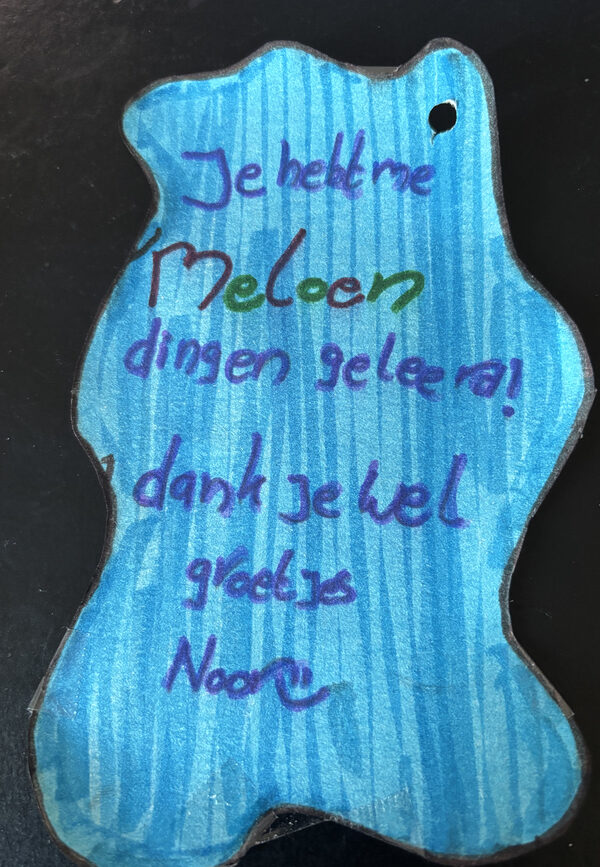 Je hebt me
Meloen
dingen geleerd!
dank je wel
groetjes
Noor